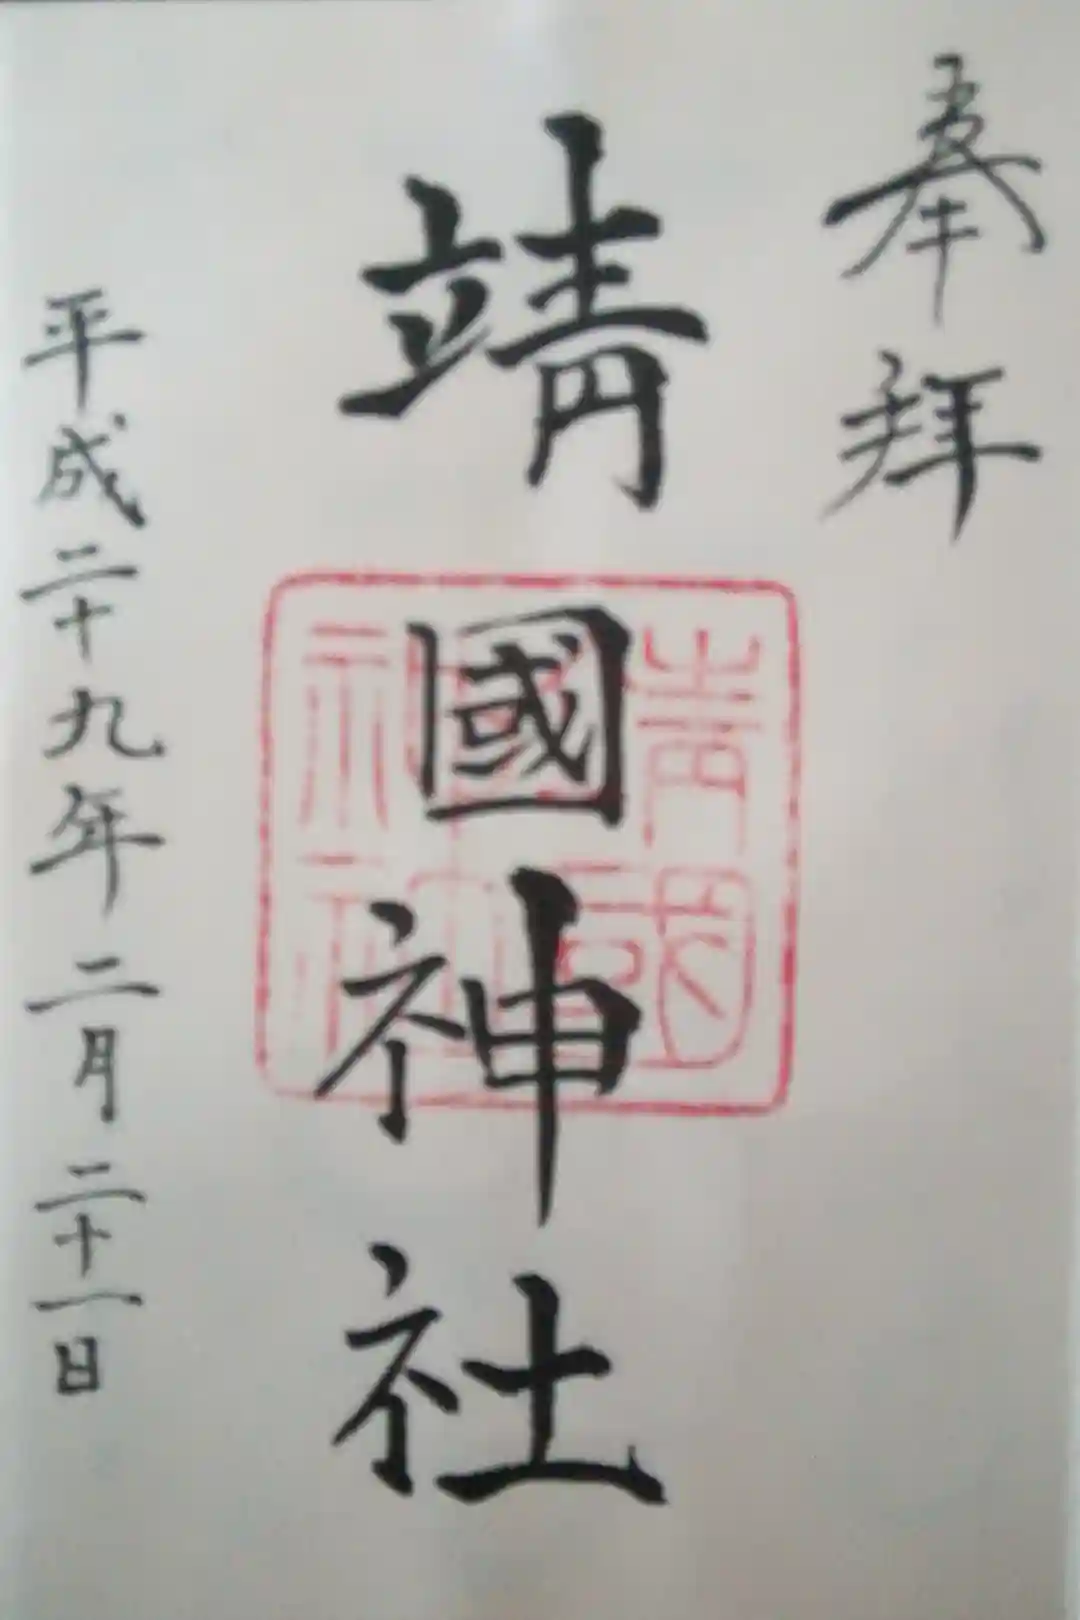 奉拝
靖國神社
平成二十九年二月二十一日